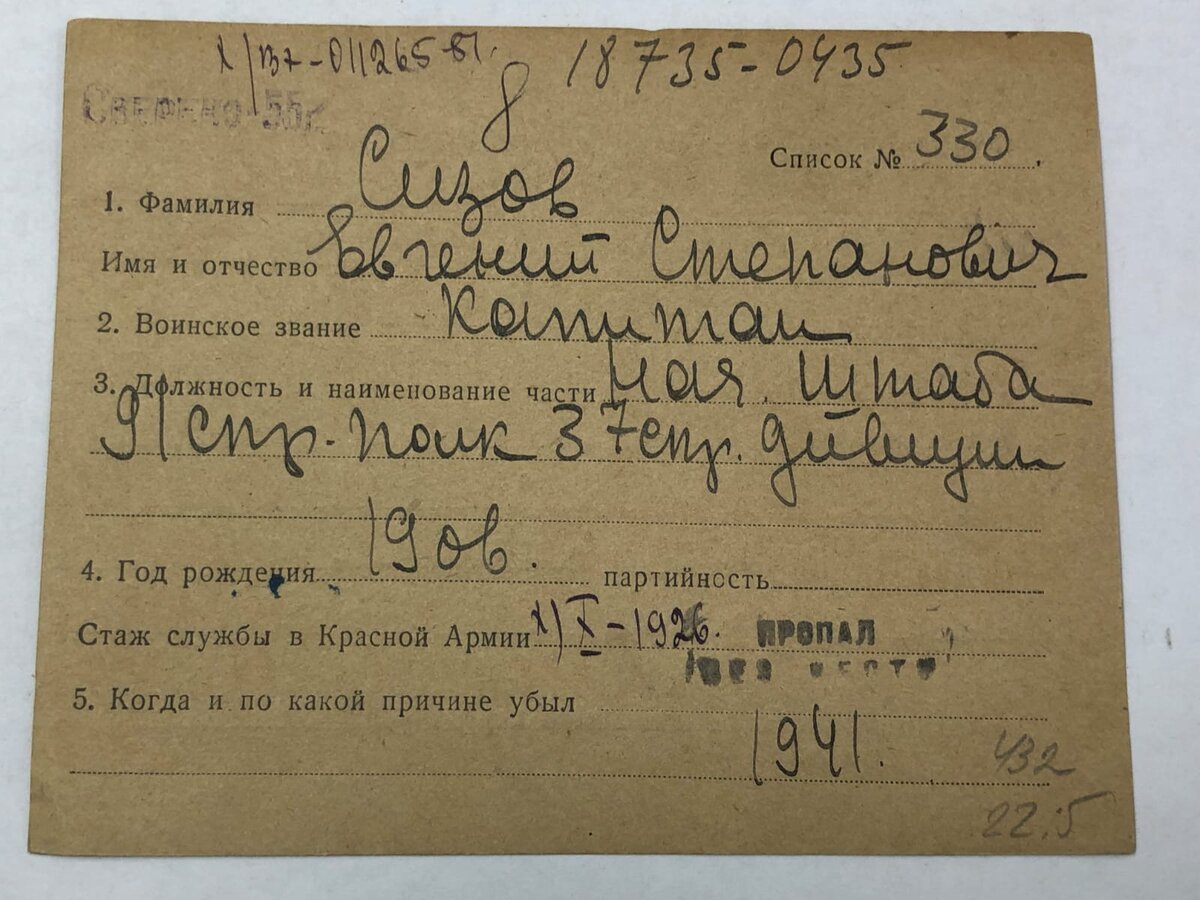 х/вх-011265-51.
8 18735-0435
Сверено-55г.
Список № 330.
1. Фамилия Сизов
Имя и отчество Евгений Степанович
2. Воинское звание Капитан
3. Должность и наименование части Нач. штаба
91 стр. полк 37 стр. дивизии
4. Год рождения 190в. партийность
Стаж службы в Красной Армии х) X-1926.
ПРОПАЛ
БЕЗ ВЕСТИ
5. Когда и по какой причине убыл
1941.
432
22.5